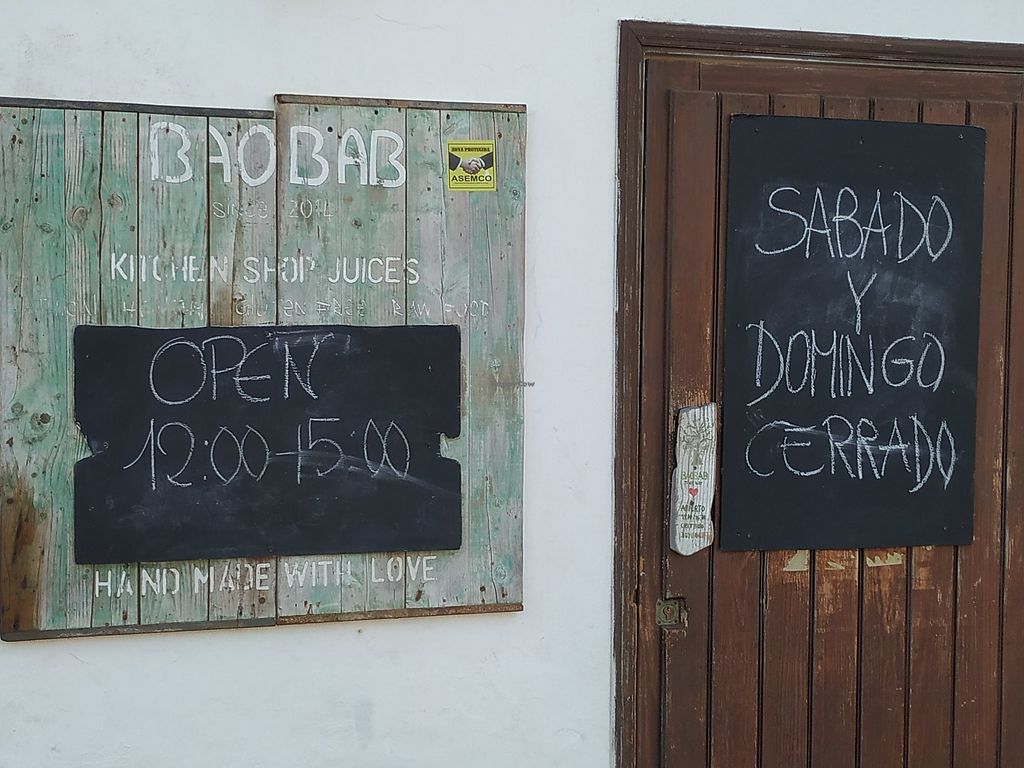 BAOBAB
SINCE 2014
KITCHEN SHOP JUICES
GLUTEN FREE RAW FOOD
OPEN
12:00-15:00
HAND MADE WITH LOVE
ZONA PROTEGIDA
ASEMCO
SABADO
Y
DOMINGO
CERRADO
BAOBAB
ABIERTO